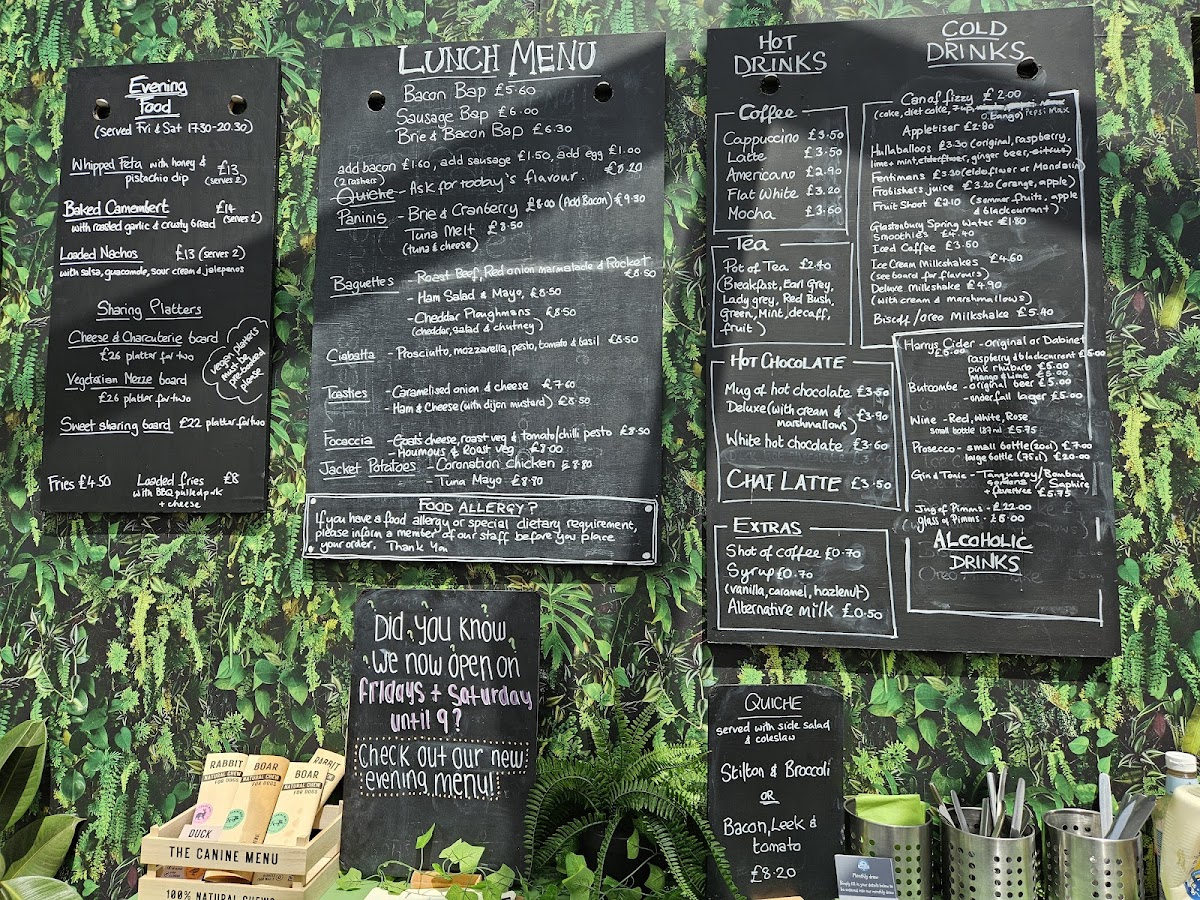 Evening
Food
(served Fri & Sat 17.30-20.30)
Whipped Feta with honey & £13
pistachio dip (serves 2)
Baked Camembert £14
with roasted garlic & crusty bread (serves 2)
Loaded Nachos £13 (serves 2)
with salsa, guacamole, sour cream & jalepenos
Sharing Platters
Cheese & Charcuterie board
£26 platter for two
Vegetarian Mezze board
£26 platter for two
platters
must be
pre-booked
please
Sweet sharing board £22 platter for two
Fries £4.50 Loaded fries £8
with BBQ pulled pork
+ cheese
LUNCH MENU
Bacon Bap £5.60
Sausage Bap £6.00
Brie & Bacon Bap £6.30
add bacon £1.60, add sausage £1.50, add egg £1.00
(2 rashers)
Quiche - Ask for today's flavour. £8.20
Paninis - Brie & Cranberry £8.00 (Add Bacon) £9.30
Tuna Melt £8.50
(tuna & cheese)
Baguettes - Roast Beef, Red onion marmalade & Rocket
£8.50
- Ham Salad & Mayo, £8.50
- Cheddar Ploughmans £8.50
(cheddar, salad & chutney)
Ciabatta - Prosciutto, mozzarella, pesto, tomato & basil £8.50
Toasties - Caramelised onion & cheese £7.60
- Ham & Cheese (with dijon mustard) £8.50
Focaccia - Goats cheese, roast veg & tomato/chilli pesto £8.50
- Houmous & Roast veg £8.00
Jacket Potatoes - Coronation chicken £8.80
- Tuna Mayo £8.80
FOOD ALLERGY?
If you have a food allergy or special dietary requirement,
please inform a member of our staff before you place
your order. Thank You
HOT
DRINKS
Coffee
Cappuccino £3.50
Latte £3.50
Americano £2.90
Flat White £3.20
Mocha £3.60
Tea
Pot of Tea £2.40
(Breakfast, Earl Grey,
Lady grey, Red Bush,
Green, Mint, decaff,
fruit)
HOT CHOCOLATE
Mug of hot chocolate £3.50
Deluxe (with cream & £3.90
marshmallows)
White hot chocolate £3.60
CHAI LATTE £3.50
EXTRAS
Shot of coffee £0.70
Syrup £0.70
(vanilla, caramel, hazlenut)
Alternative milk £0.50
COLD
DRINKS
Can of fizzy £2.00
(coke, diet coke, 7up, Pepsi Max
o.tango)
Appletiser £2.80
Hullaballoos £3.30 (original, raspberry,
lime + mint, elderflower, ginger beer, citrus)
Fentimans £3.30 (elderflower or Mandarin
Frobishers juice £3.20 (orange, apple)
Fruit Shoot £2.10 (summer fruits, apple
& blackcurrant)
Glastonbury Spring Water £1.80
Smoothies £4.40
Iced Coffee £3.50
Ice Cream Milkshakes £4.60
(see board for flavours)
Deluxe milkshake £4.90
(with cream & marshmallows)
Biscoff/oreo Milkshake £5.40
Harrys Cider - original or Dabinet
£5.00 Raspberry & blackcurrant £5.00
pink rhubarb £5.00
Mango & Lime £5.00
Butcombe - original beer £5.00
- underfall lager £5.00
Wine - Red, White, Rose
small bottle 187ml £5.75
Prosecco - small bottle (20cl) £7.00
large bottle (75cl) £20.00
Gin & Tonic - Tanqueray/Bombay
Saphire
+ fevertree £5.75
Jug of Pimms - £22.00
glass of Pimms - £6.00
ALCOHOLIC
DRINKS
Did you know
We now open on
fridays + saturday
until 9?
Check out our new
evening menu!
QUICHE
served with side salad
& coleslaw
Stilton & Broccoli
OR
Bacon, Leek &
tomato
£8.20
RABBIT
NATURAL CHEW
FOR DOGS
BOAR
NATURAL CHEW
FOR DOGS
BOAR
NATURAL CHEW
FOR DOGS
RABBIT
DUCK
THE CANINE MENU
100% NATURAL CHEWS
Monthly draw